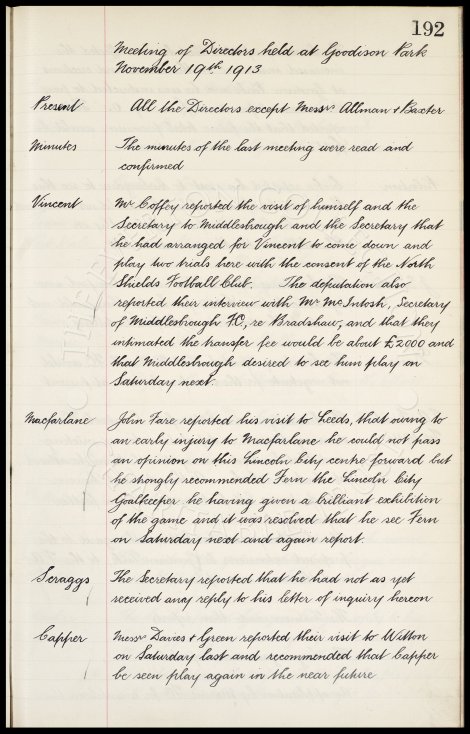 192
Meeting of Directors held at Goodison Park
November 19th 1913
Present All the Directors except Messrs Allman & Baxter
Minutes The minutes of the last meeting were read and
confirmed
Vincent Mr Coffey reported the visit of himself and the
Secretary to Middlesbrough and the Secretary that
he had arranged for Vincent to come down and
play two trials here with the consent of the North
Shields Football Club. The deputation also
reported their interview with Mr McIntosh, Secretary
of Middlesbrough FC, re Bradshaw, and that they
intimated the transfer fee would be about £2000 and
that Middlesbrough desired to see him play on
Saturday next.
Macfarlane John Fare reported his visit to Leeds, that owing to
an early injury to Macfarlane he could not pass
an opinion on this Lincoln City centre forward but
he strongly recommended Fern the Lincoln City
Goalkeeper he having given a brilliant exhibition
of the game and it was resolved that he see Fern
on Saturday next and again report
Scraggs The Secretary reported that he had not as yet
received any reply to his letter of inquiry hereon
Capper Messrs Davies & Green reported their visit to Witton
on Saturday last and recommended that Capper
be seen play again in the near future